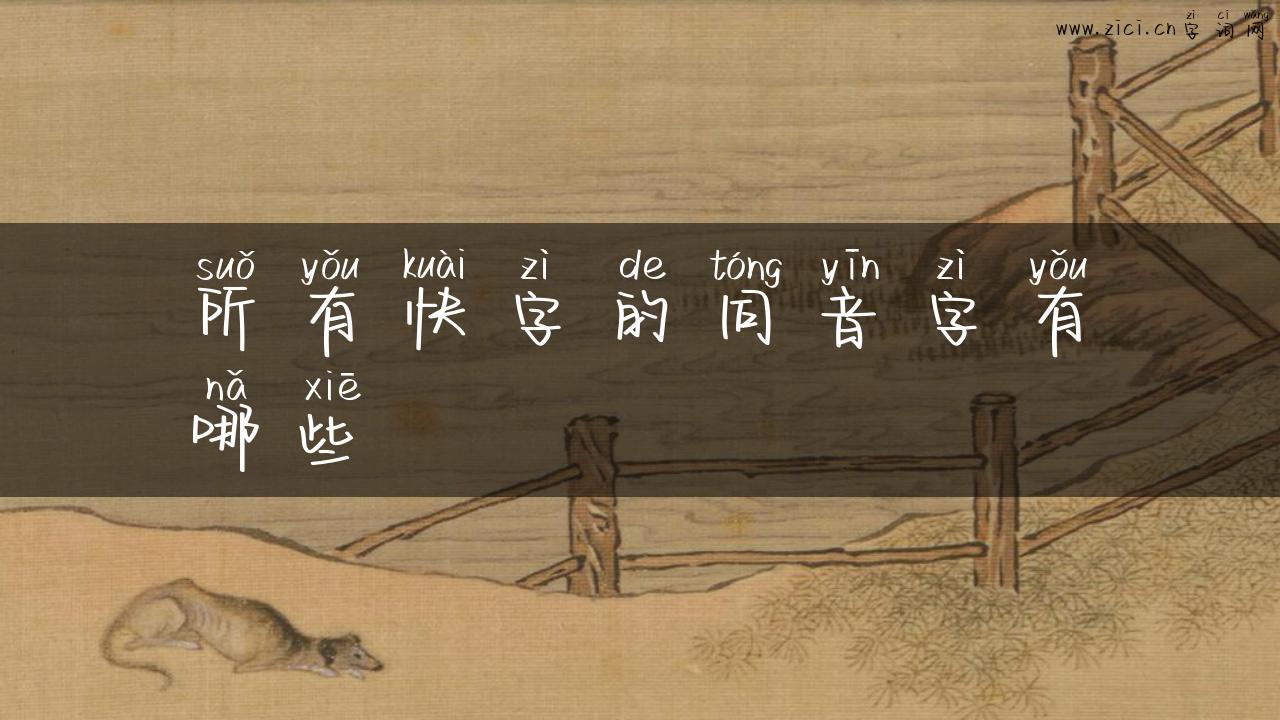 zì cí wǎng
www.zici.cn 字 词 网
suǒ yǒu kuài zì de tóng yīn zì yǒu
所 有 快 字 的 同 音 字 有
nǎ xiē
哪 些